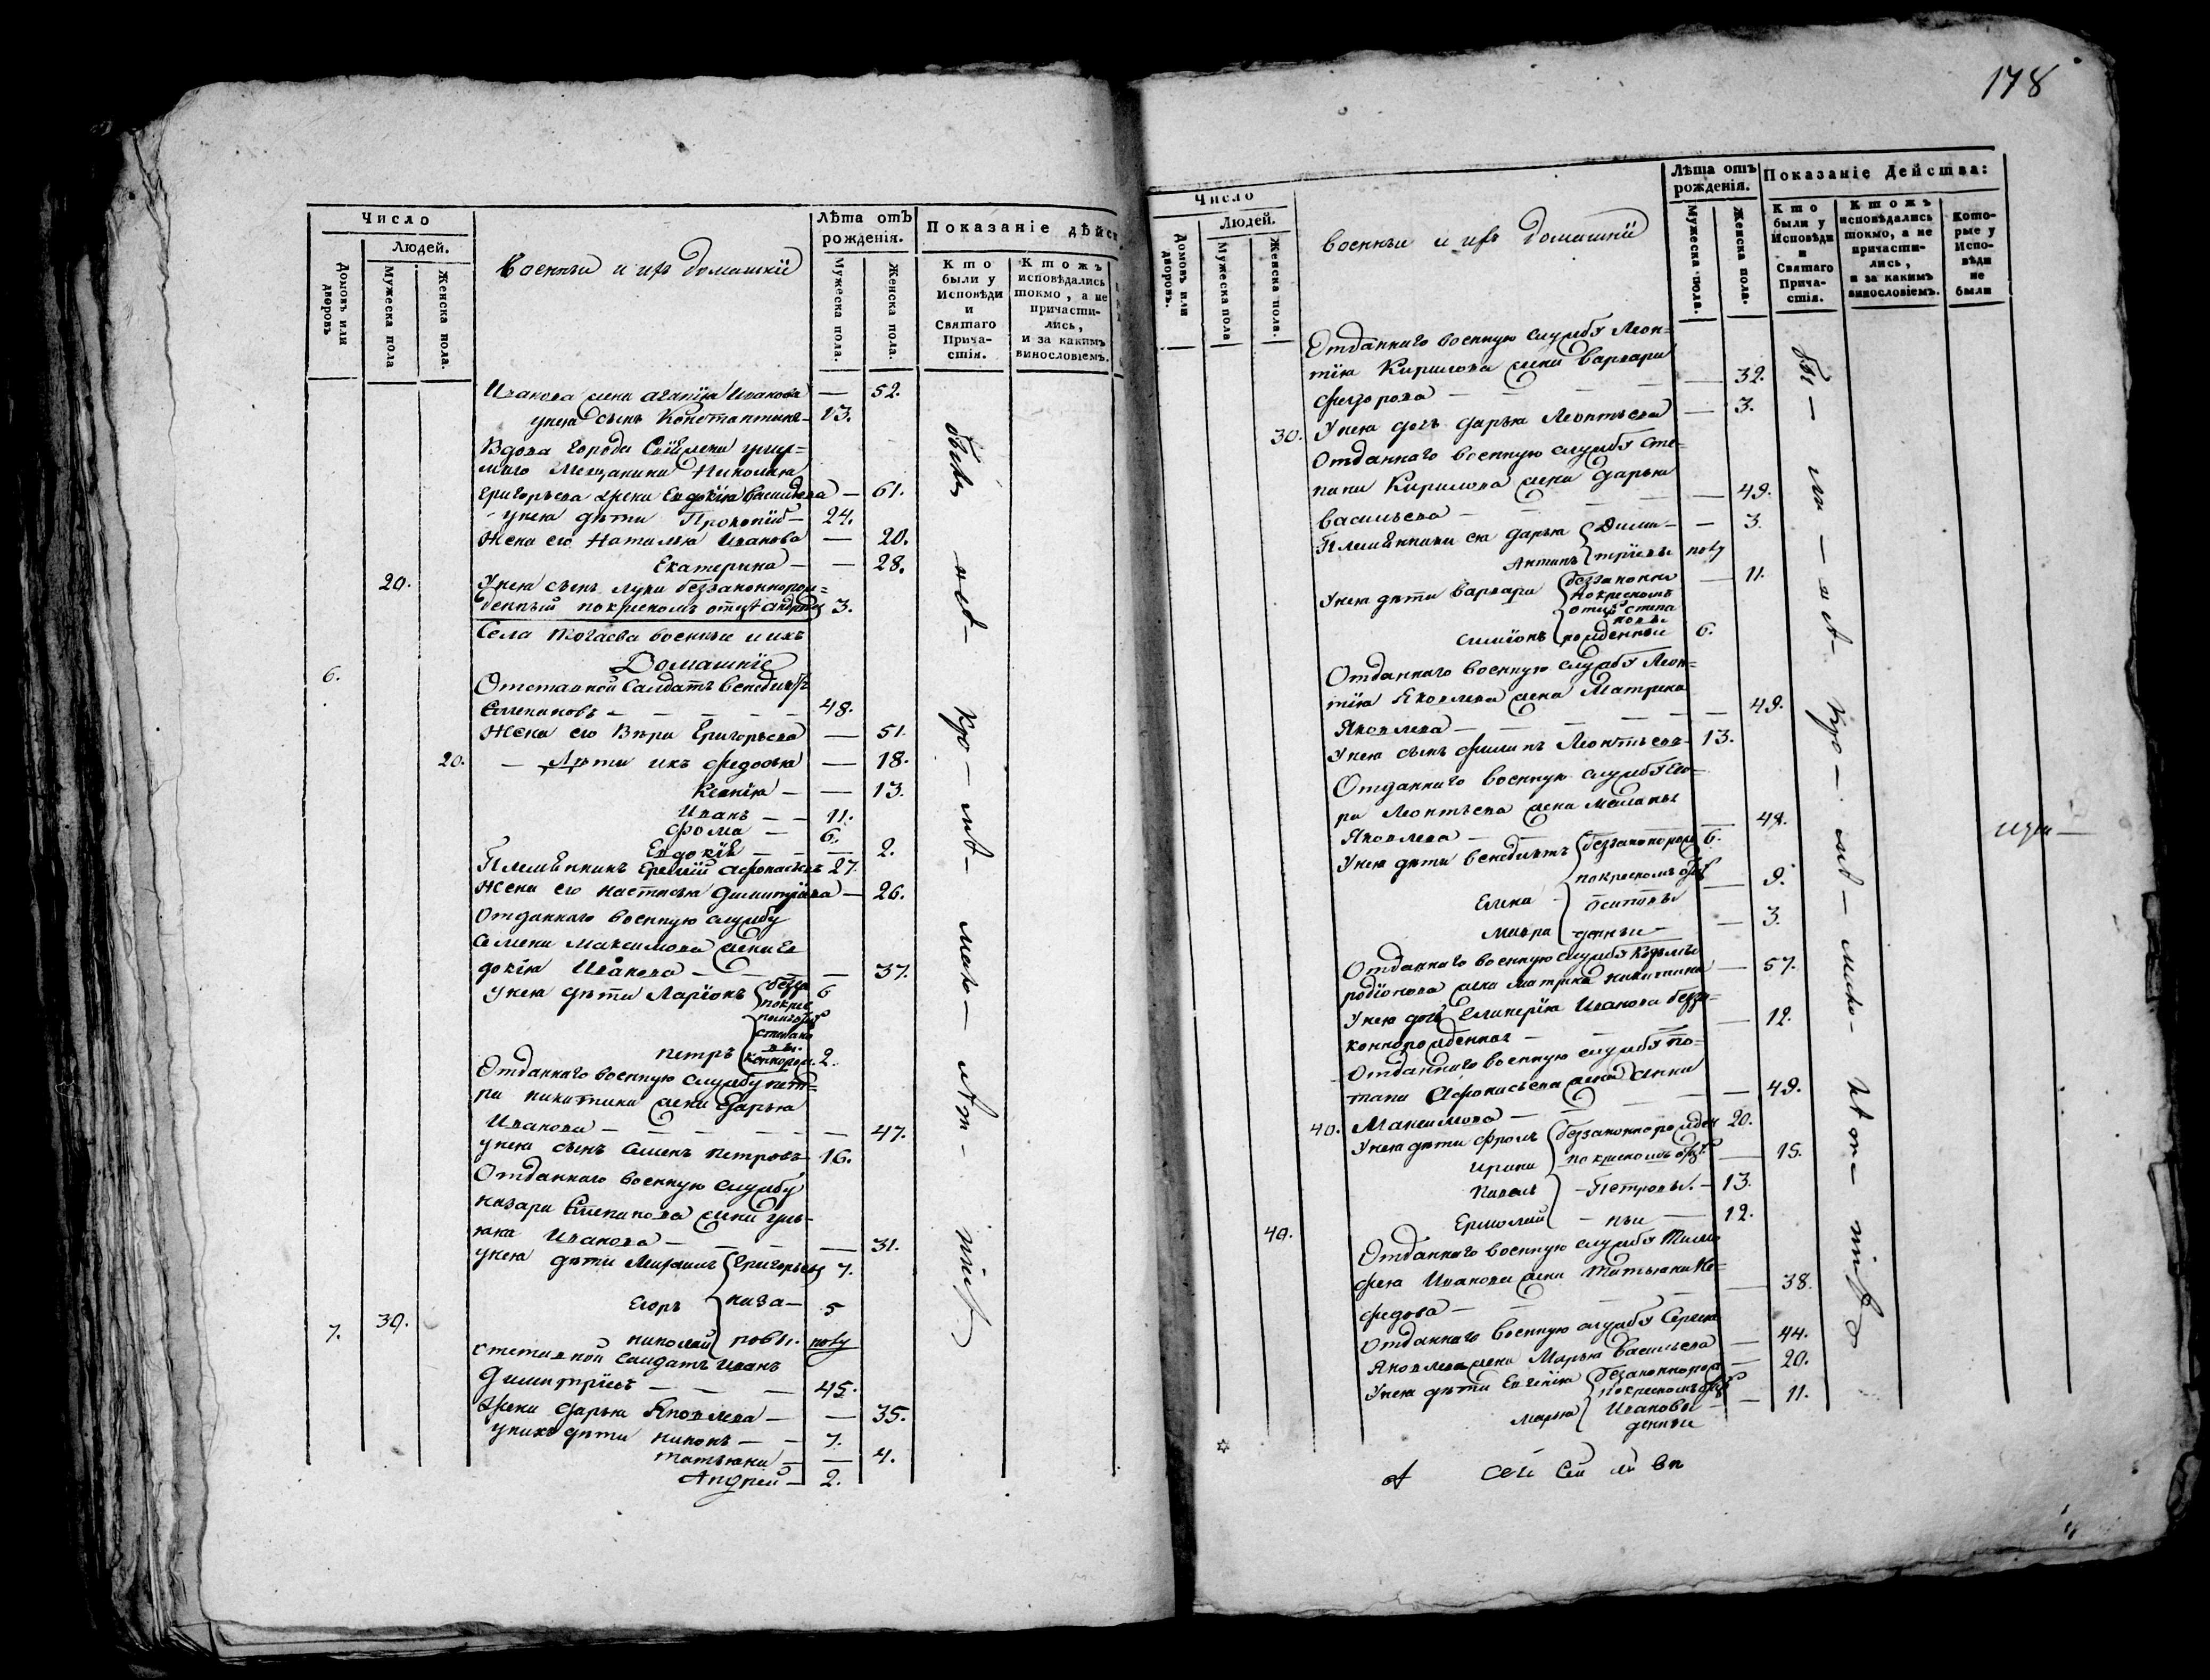 Число
Людей.
Домовъ или дворовъ
Мужеска пола
Женска пола.
Военныи и ихъ домашнїи
Лѣта отъ рожденія.
Мужеска пола.
Женска пола.
Показаніе дѣйс
Кто были у Исповѣди и Святаго Прича-стія.
Ктожъ исповѣдались токмо, а не причасти-лись, и за какимъ винословіемъ.
Иванова жена Агапїя Иванова — 52.
унея сынъ Константинъ — 13.
Вдова города
маго Мещанина Николая
Григорьева жена Евдокїя Васильева — 61.
унея дѣти Прокопїй — 24.
Жена его Наталья Иванова — 20.
Екатерина — — 28.
20. Унея сынъ Лука беззаконнорож=
денный покрестномъ отцѣ 3.
Села военныи и ихъ
Домашнїе
6. Отставной Салдатъ Венедиктъ
Степановъ — — — — 48.
Жена его Вѣра Григорьева — 51.
20. — Дѣти ихъ Федосья — 18.
Ксенїя — — 13.
Иванъ — — 11.
Фома — 6.
Евдокїя — — 2.
Племѣнникъ Еремѣй Афонасьевъ 27.
Жена его Настасья Димитрїева — 26.
Отданнаго военную службу
Семена Максимова жена Ев
докїя Иванова — — — 37.
Унея дѣти Ларїонъ 6
Петръ 2.
Отданнаго военную службу Пет=
ра Никитина жена Дарья
Иванова — — — — 47.
унея сынъ Семенъ Петровъ 16.
Отданнаго военную службу
Назара Степанова жена Уль-
яна Иванова — — — 31.
унея дѣти Михаилъ Григорьевъ 7.
Егоръ наза— 5
30. Николай ровы. полу
7. Отставной Салдатъ Иванъ
Димитрїевъ — — — 45.
Жена Дарья Яковлева — — 35.
унихъ дѣти Никонъ — — 7.
Татьяна — — 4.
Андрей — 2.
178
Число
Людей.
Домовъ или дворовъ.
Мужеска пола
Женска пола.
Военныи и ихъ домашнїи
Лѣта отъ рожденія.
Мужеска пола.
Женска пола.
Показаніе Действа:
Кто были у Исповѣди и Святаго Прича-стія.
Ктожъ исповѣдались токмо, а не причасти-лись, и за какимъ винословіемъ.
Кото-рые у Испо-вѣди не были
Отданнаго военную службу Леон=
тїя Кирилова жена Варвара
Федорова — — — — 32.
30. Унея дочь Дарья Леонтьева — 3.
Отданнаго военную службу Сте-
пана Кирилова жена Дарья
Васильева — — — — 49.
Племѣнники ея Дарья Дими— — 3.
Антипъ трїевы полу
Унея дѣти Варвара беззаконно — 11.
покрестномъ
отцѣ степа
новы
Симїонъ рожденныи 6.
Отданнаго военную службу Леон=
тїя Яковлева жена Матрена
Яковлева — — — — 49.
Унея сынъ Филипъ Леонтьевъ 13.
Отданнаго военную службу Его-
ра Леонтьева жена Маланья
Яковлева — — — 48.
Унея дѣти Венедиктъ беззаконорож 6.
покрестномъ
Елена осиповы — 9.
Мавра денныи — 3.
Отданнаго военную службу Козмы
Родїонова жена Матрена Никитина — 57.
Унея дочь Гликерїя Иванова безза-
коннорожденная — — 12.
Отданнаго военную службу По-
тапа Афонасьева жена Анна
40. Максимова — — — 49.
Унея дѣти Фролъ беззаконнорожден 20.
Ирина покрестномъ — 15.
Павелъ — Петровы. — 13.
Ермолай — ныи — 12.
40. Отданнаго военную службу Тимо
фея Иванова жена Татьяна Не-
федова — — — — 38.
Отданнаго военную службу Сергея
Яковлева жена Марья Васильева — 44.
Унея дѣти Евгенїя беззаконнорож — 20.
покрестномъ
Марья Ивановы — 11.
денныи